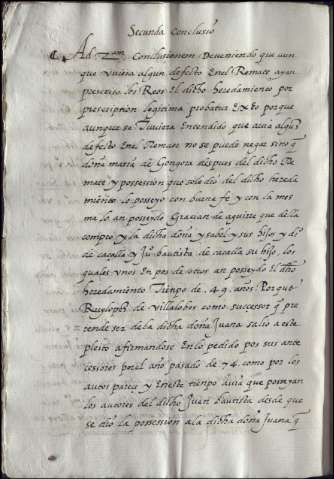 Secunda Conclusio
Ad 2am Conclusionem Deveniendo que aun
que uviera algun defecto En el Remate ayan
prescrito los Reos El dicho heredamiento por
prescription legitima probatur Ex Eo porque
aunque se tuviera Entendido que avia algun
defecto En el Remate no se puede negar sino q
doña maria de Gongora despues del dicho Re
mate y possession que sele dio del dicho hereda
miento lo posseyo con buena fe y con la mes
ma lo an posseydo Graçian de aguirre que della
compro y la dicha doña ysabel y sus hijos y di
de caçalla y Juo bautista de caçalla su hijo los
quales unos En pos de otros an posseydo El dho
heredamiento Tiempo de 49 años. Porque
Ruylopez de villalobos como successor q pre
tende ser de la dicha doña Juana salio a este
pleito afirmandose En lo pedido por sus ante
cessores por el año pasado de 74. como por los
autos pareçe y En este tiempo avia que posseyan
los autores del dicho Juan bautista desde que
se dio la possession ala dicha doña Juana q